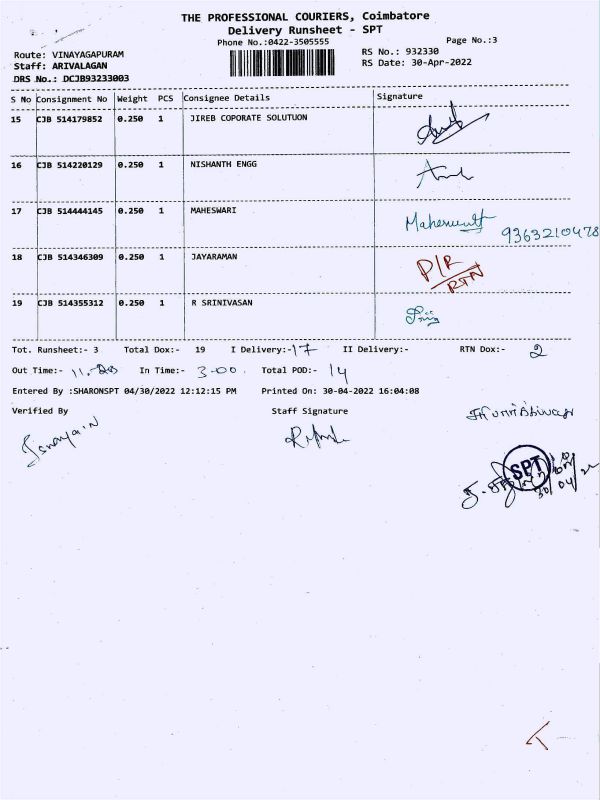 THE PROFESSIONAL COURIERS, Coimbatore
Delivery Runsheet - SPT
Phone No.:0422-3505555
Page No.:3
Route: VINAYAGAPURAM
RS No.: 932330
Staff: ARIVALAGAN
RS Date: 30-Apr-2022
DRS No.: DCJB93233003
S No Consignment No Weight PCS Consignee Details Signature
15 CJB 514179852 0.250 1 JIREB COPORATE SOLUTUON
16 CJB 514220129 0.250 1 NISHANTH ENGG
17 CJB 514444145 0.250 1 MAHESWARI 9363210478
18 CJB 514346309 0.250 1 JAYARAMAN P/R RTN
19 CJB 514355312 0.250 1 R SRINIVASAN
Tot. Runsheet:- 3 Total Dox:- 19 I Delivery:-17 II Delivery:- RTN Dox:- 2
Out Time:- In Time:- 3-00 Total POD:- 14
Entered By :SHARONSPT 04/30/2022 12:12:15 PM Printed On: 30-04-2022 16:04:08
Verified By Staff Signature
SPT
30/04/22